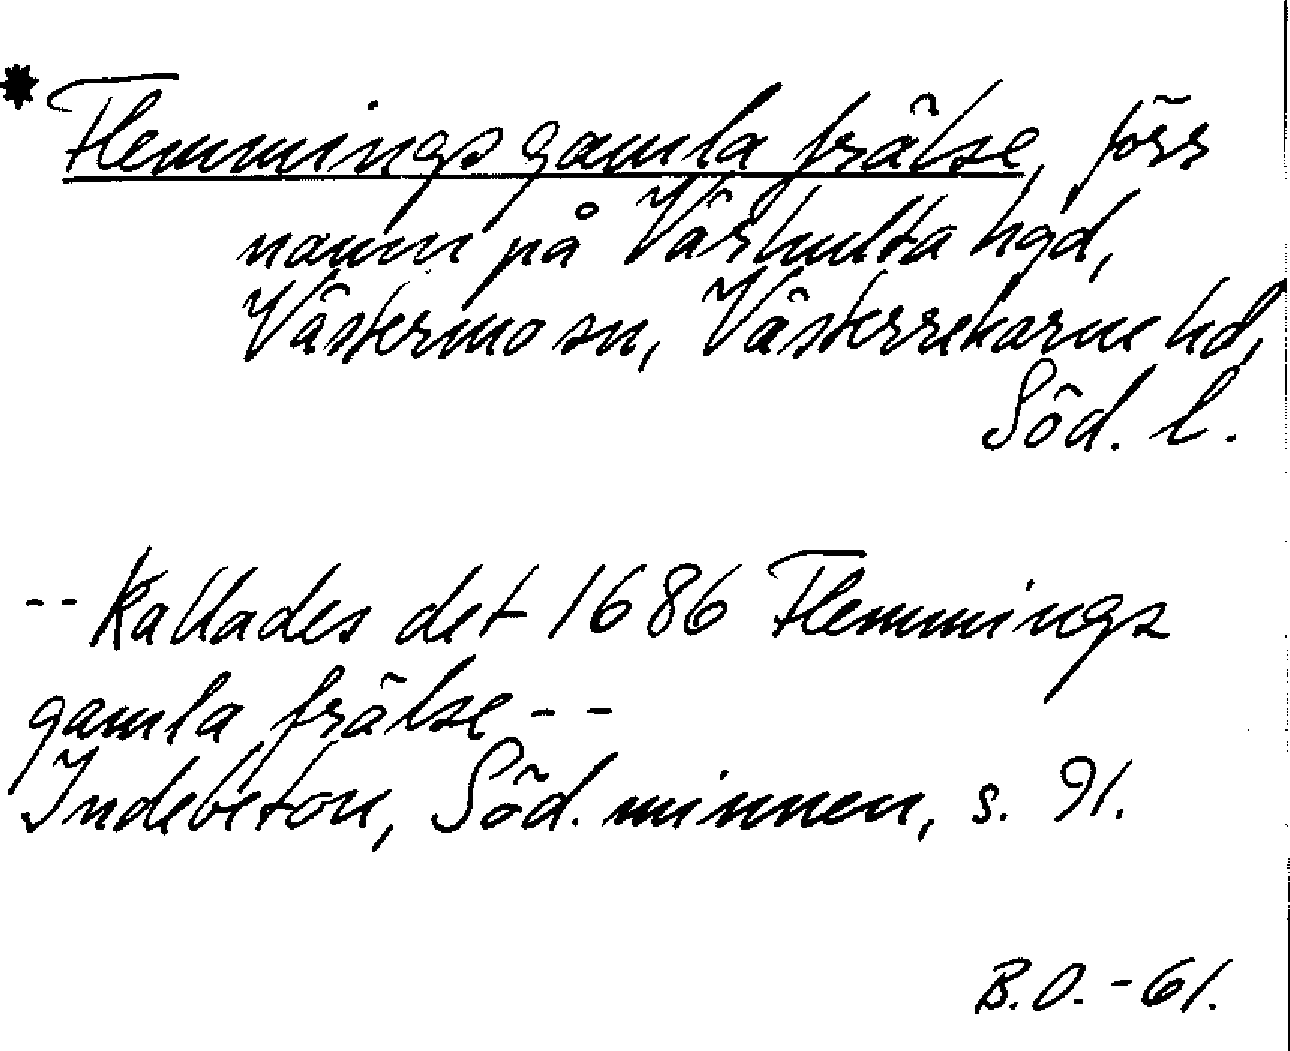 * Flemmings gamla frälse, förr
namn på Värhulta hgd,
Västermo sn, Västerrekarne hd,
Söd. l.
-- Kallades det 1686 Flemmings
gamla frälse --
Indebetou, Söd. minnen, s. 91.
B.O. -61.